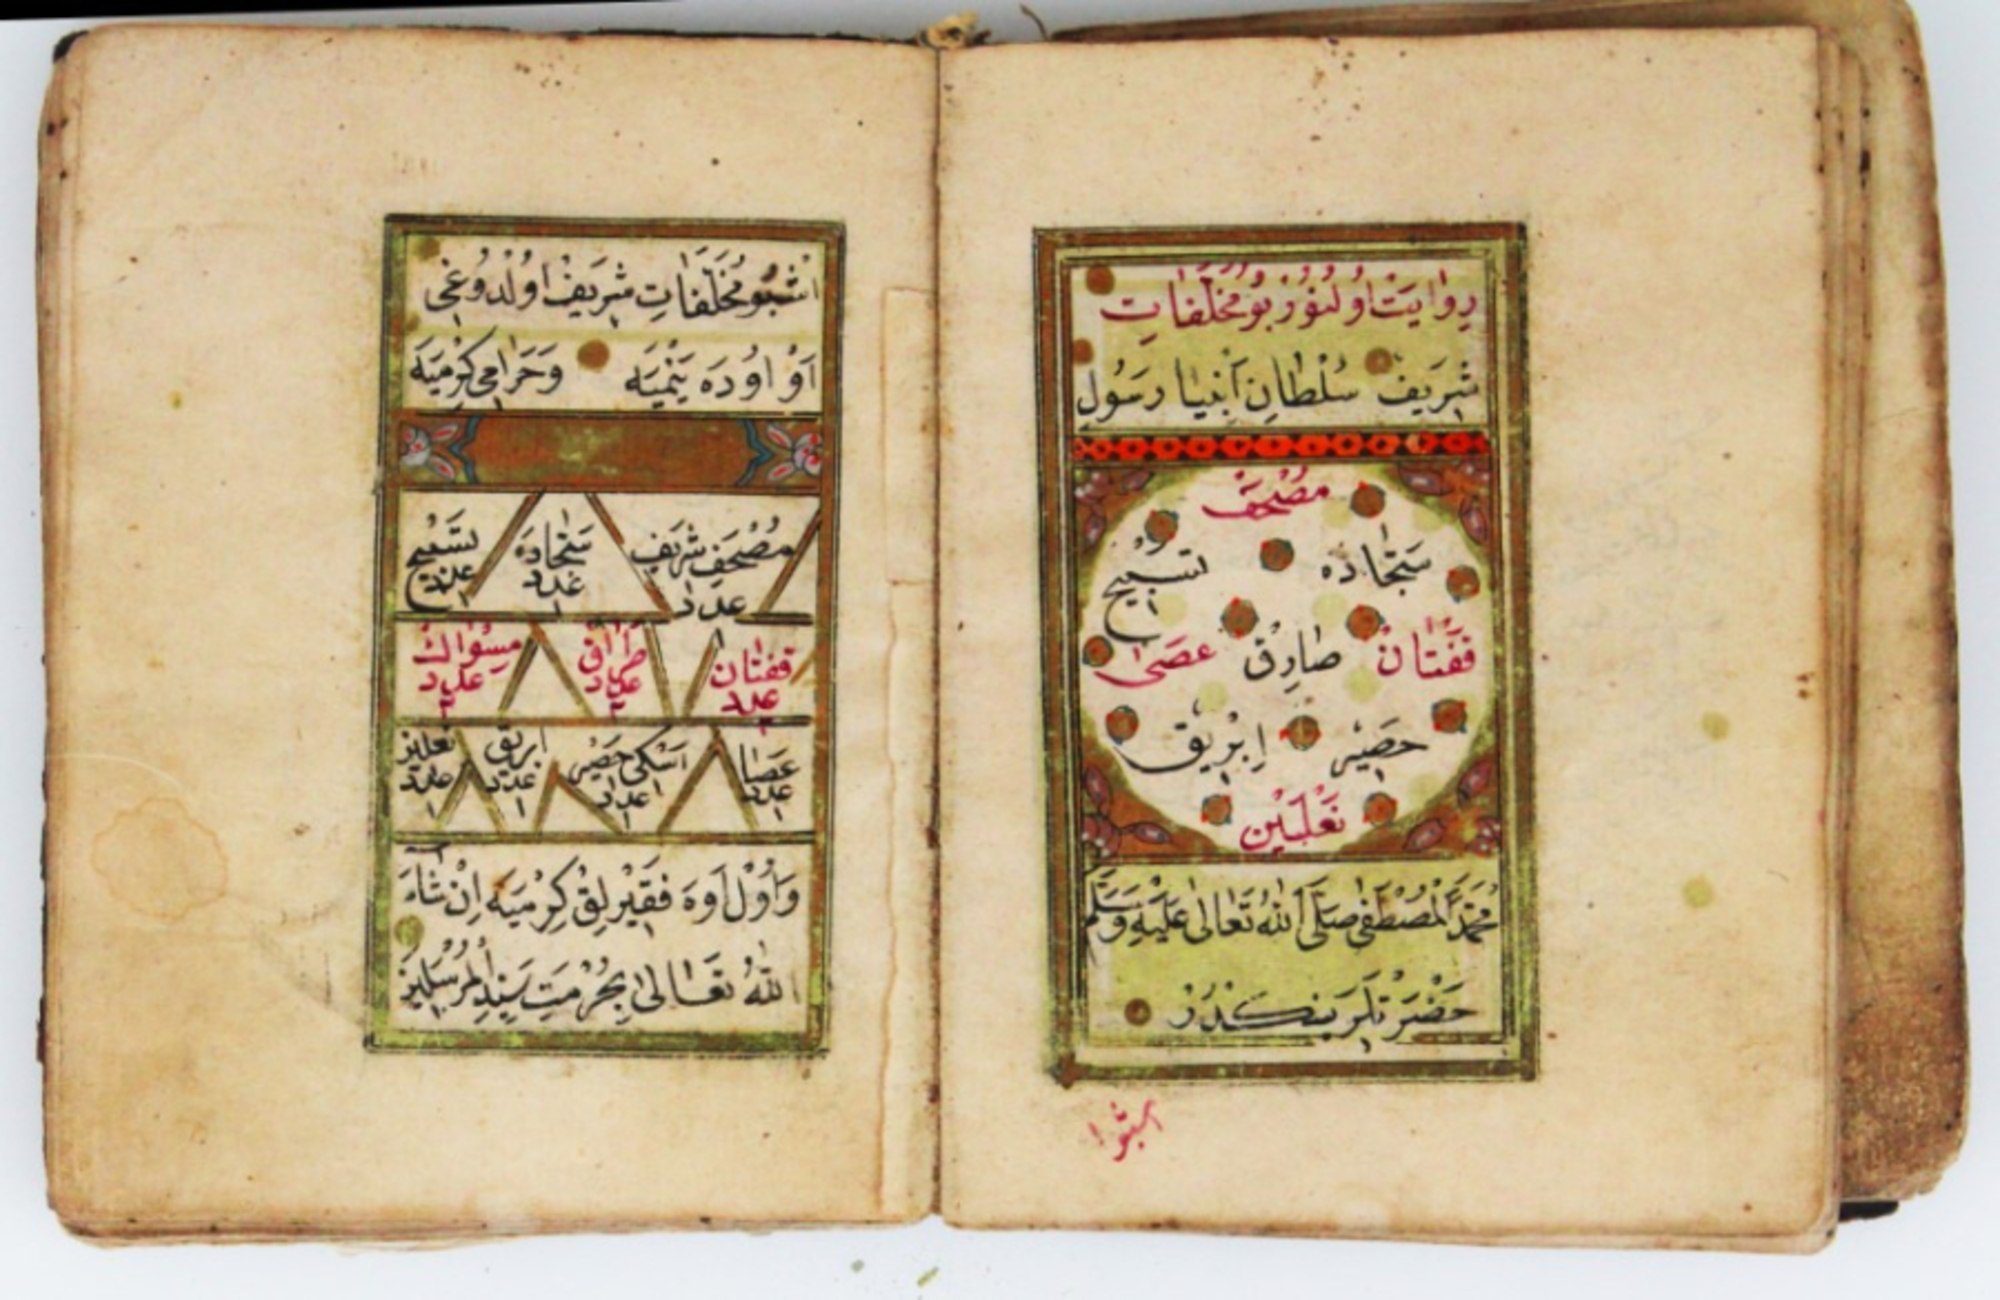 رِوَايَتْ اُولُنُورْ بُو مُخَلَّفَاتِ
شَرِيفْ سُلْطَانِ اَنْبِيَا رَسُولِ
مُصْحَفْ
سَجَّادَه تَسْبِيحْ
قَفْتَانْ طَارِقْ عَصَى
حَصِيرْ اِبْرِيقْ
نَعْلَيْنْ
مُحَمَّدَ الْمُصْطَفَى صَلَّى اللهُ تَعَالَى عَلَيْهِ وَسَلَّمْ
حَضْرَتْلَرِينِكْدُرْ
اشبو
اِشْبُو مُخَلَّفَاتِ شَرِيفْ اُولْدُوغِى
اَوْ اُودَه يَنْمَيَه وَحَرَامِى كِرْمَيَه
مُصْحَفِ شَرِيفْ عدد ١ سَجَّادَه عدد ١ تَسْبِيحْ عدد ١
قفتان عدد طراق عدد مِسْوَاكْ عدد
عَصَا عدد ١ اَسْكِى حَصِيرْ عدد ١ اِبْرِيقْ عدد ١ نعلين عدد ١
وَاُولْ اَوَه فَقِيرْلِقْ كِرْمَيَه اِنْ شَاءَ
اللهُ تَعَالَى بِحُرْمَتِ سَيِّدِ الْمُرْسَلِينَ